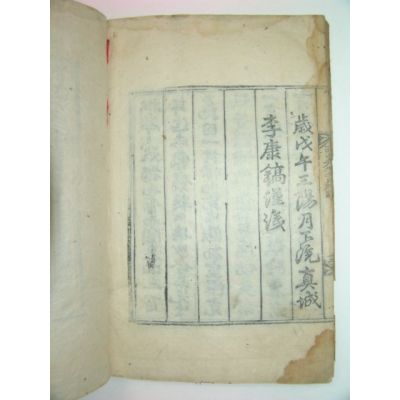 歲戊午三陽月下浣真城
李康鎬謹識